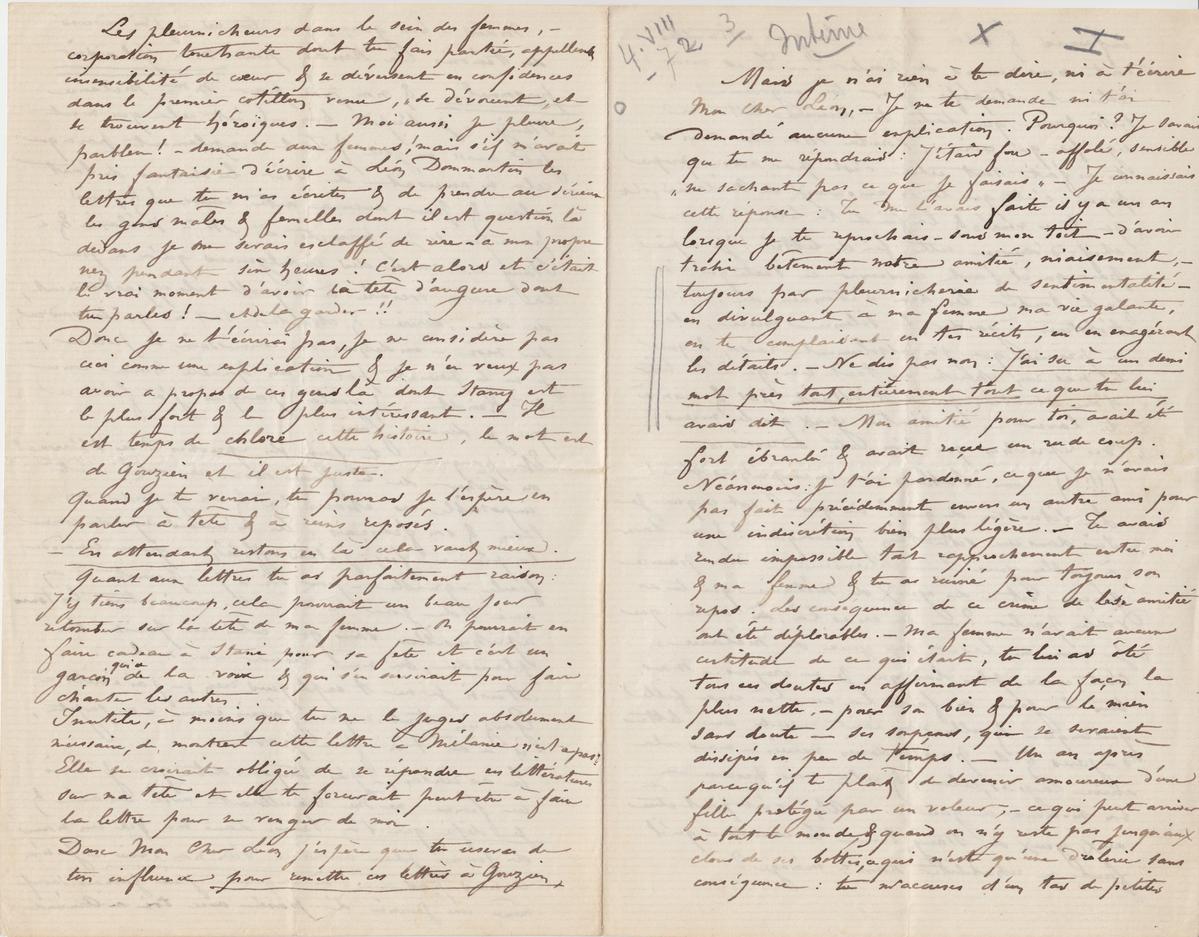 Les pleurnicheurs dans le sein des femmes, –
corporation touchante dont tu fais partie, appellent
insensibilité de cœur & se déversent en confidences
dans le premier cotillon venu, se dévouent, et
se trouvent héroïques. – Moi aussi je pleure,
parbleu! – demande aux femmes, mais s'il m'avait
pris fantaisie d'écrire à Léon Dommartin les
lettres que tu m'as écrites & de prendre au sérieux
les gens mâles & femelles dont il est question là
dedans je me serais esclaffé de rire – à mon propre
nez pendant six heures! C'est alors et c'était
le vrai moment d'avoir la tête d'augure dont
tu parles! – et de la garder!!
Donc je ne t'écrirai pas, je ne considère pas
ceci comme une explication & je n'en veux pas
avoir a propos de ces gens là dont Stany est
le plus fort & le plus intéressant. – Il
est temps de chlore cette histoire, le mot est
de Gouzien et il est juste.
Quand je te verrai, tu pourras je l'espère en
parler à tête & à reins reposés.
– En attendant, restons en là cela vaut mieux.
Quant aux lettres tu as parfaitement raison:
J'y tiens beaucoup, cela pourrait un beau jour
retomber sur la tête de ma femme. – On pourrait en
faire cadeau à Stani pour sa fête et c'est un
garçon qui a de la voix & qui s'en servirait pour faire
chanter les autres.
Inutile, à moins que tu ne le juges absolument
nécessaire, de montrer cette lettre à Mélanie n'est ce pas?
Elle se croirait obligée de se répandre en littératures
sur ma tête et elle te forcerait peut être à faire
la lettre pour se venger de moi.
Donc Mon Cher Léon j'espère que tu useras de
ton influence pour remettre ces lettres à Gouzien,
4. VIII
– 72
3
Intime
X
I
Mais je n'ai rien à te dire, ni à t'écrire
Mon cher Léon, – Je ne te demande ni t'ai
demandé aucune explication. Pourquoi? Je savais
que tu me répondrais: J'étais fou – affolé, sensible
„ne sachant pas ce que je faisais" – Je connaissais
cette réponse: Tu me l'avais faite il y a un an
lorsque je te reprochais – sous mon toit – d'avoir
trahi bêtement notre amitié, niaisement, –
toujours par pleurnicherie de sentimentalité –
en divulguant à ma femme ma vie galante,
en te complaisant en tes récits, en en exagérant
les détails. – Ne dis pas non: J'ai su à un demi
mot près tout, entièrement tout ce que tu lui
avais dit. – Mon amitié pour toi, avait été
fort ébranlée & avait reçue un rude coup.
Néanmoins: je t'ai pardonné, ce que je n'avais
pas fait précédemment envers un autre ami pour
une indiscrétion bien plus légère. – Tu avais
rendu impossible tout rapprochement entre moi
& ma femme & tu as ruiné pour toujours son
repos. Les conséquence de ce crime de lèse amitié
ont été déplorables. – Ma femme n'avait aucun
certitude de ce qui était, tu lui as ôté
tous ses doutes en affirmant de la façon la
plus nette, – pour son bien & pour le mien
sans doute – ses soupçons, qui se seraient
dissipés en peu de temps. – Un an après
parcequ'il te plaît de devenir amoureux d'une
fille protégé par un voleur, – ce qui peut arriver
à tout le monde & quand on n'y reste pas jusqu'aux
clous de ses bottes, ce qui n'est qu'une drôlerie sans
conséquence: tu m'accuses d'un tas de petites